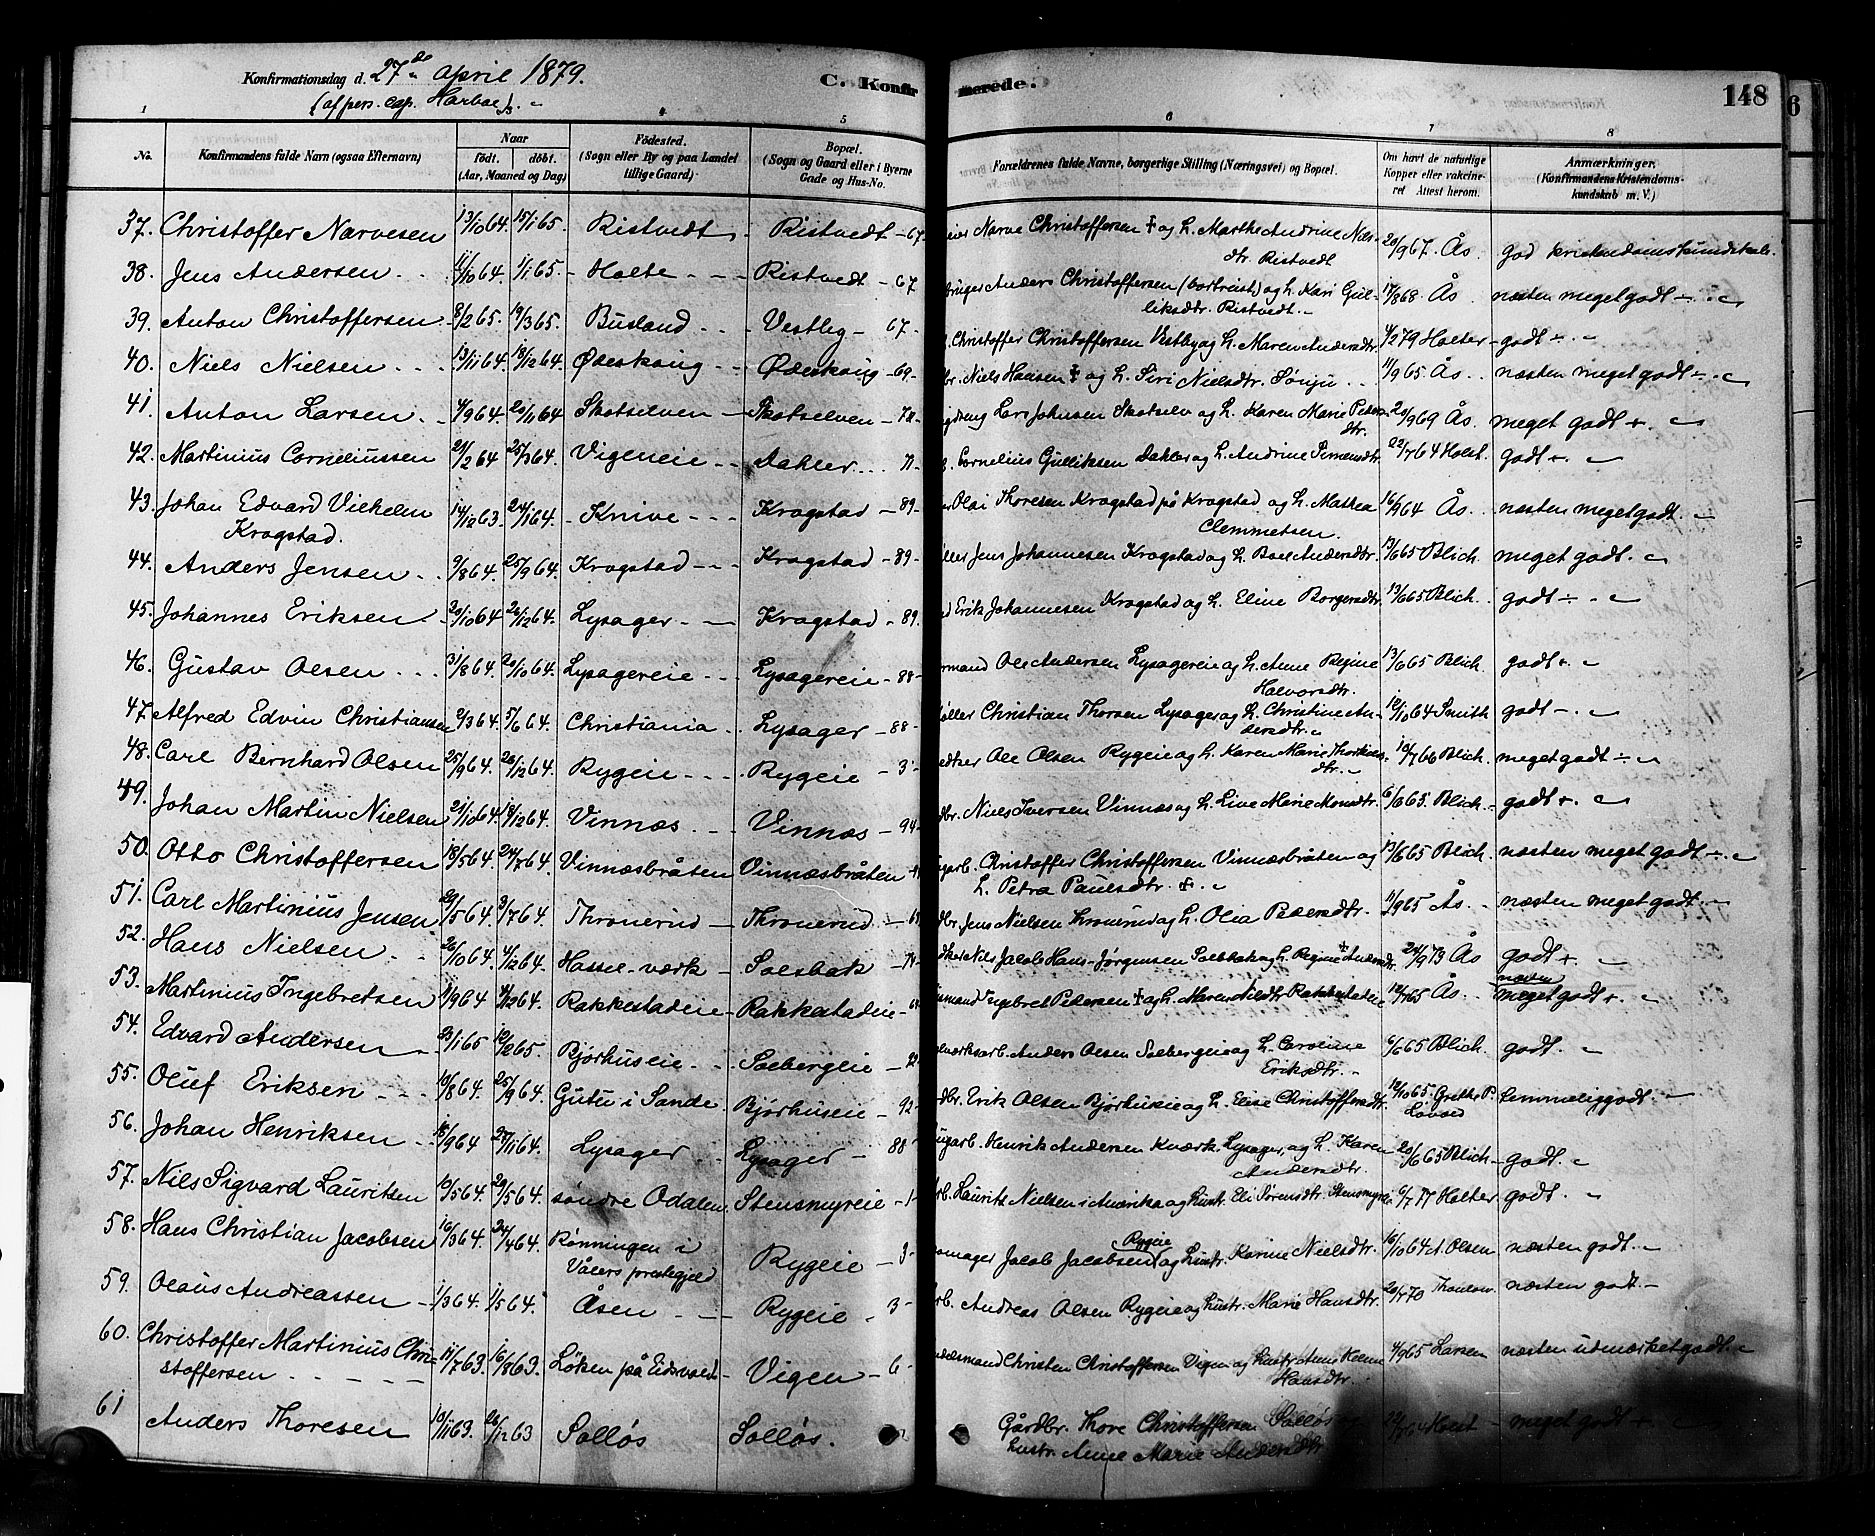 Konfirmationsdag d. 27de April 1879.
(af pers. cap. Harboe).
C. Konfirmerede.
148
1 4 5 6 7 8
No.
Konfirmandens fulde Navn (ogsaa Efternavn)
Naar
født. døbt.
(Aar, Maaned og Dag)
Fødested.
(Sogn eller By og paa Landet
tillige Gaard)
Bopæl.
(Sogn og Gaard eller i Byerne
Gade og Hus-No.
Forældrenes fulde Navne, borgerlige Stilling (Næringsvei) og Bopæl.
Om havt de naturlige
Kopper eller vakcine-
ret Attest herom.
Anmærkninger.
(Konfirmandens Kristendoms-
kundskab m. V.)
37. Christoffer Narvesen 13/10 64. 15/1 65. Ristvedt Ristvedt - 67. Narve Christoffersen ‡ og h. Marthe Andrine Niels-
dtr. Ristvedt 20/9 67. Ås. god kristendomskundskab.
38. Jens Andersen 1/1 65. Holte Ristvedt - 67 Anders Christoffersen (bortreist) og h. Kari Gul-
liksdtr. Ristvedt. 17/8 68. Ås næsten meget godt ÷
39. Anton Christoffersen 8/2 65. 19/3 65. Busland Vestbg - 67. Christoffer Christoffersen Vestby og h. Maren Andersdtr. 4/2 79 Holter godt ÷
40. Niels Nielsen 13/11 64. 18/12 64. Ødeskoug Ødeskoug - 69. Niels Hansen ‡ og h. Siri Nielsdtr. Sønju 11/9 65. Ås næsten meget godt ÷
41. Anton Larsen 4/9 64. 20/11 64 Skotselven Skotselven - 72. Lars Johnsen Skotselv og h. Karen Marie Peders-
dtr. 20/9 69 Ås meget godt +
42. Martinius Corneliussen 21/2 64 25/3 64. Vigeneie Dahler 71. Cornelius Gulliksen Dahler og h. Andrine Pernensdtr. 22/7 64 Holst. godt +
43. Johan Edvard Vilhelm
Krogstad. 14/12 63. 24/1 64. Knive Krogstad - 89. Olai Thoresen Krogstad på Krogstad og h. Mathea
Clemmetsen. 16/9 64 Ås. næsten meget godt.
44. Anders Jensen 9/8 64. 25/9 64. Krogstad Krogstad - 89. Jens Johannesen Krogstad og h. Boel Andersdtr. 13/6 65 Blich. meget godt.
45. Johannes Eriksen 30/10 64 26/12 64. Lysager Krogstad - 89. Erik Johannesen Krogstad og h. Eline Borgersdtr. 13/6 65 Blich. godt ÷
46. Gustav Olsen 31/8 64. 20/10 64. Lysagereie Lysagereie - 88 Ole Andersen Lysagereie og h. Anne Regine
Halvorsdtr. 13/6 65 Blich. godt +
47. Alfred Edvin Christiansen 2/3 64 5/6 64. Christiania Lysager - 88 Christian Thorsen Lysager og h. Christine An-
dersdtr. 12/10 64 Smith godt -
48. Carl Bernhard Olsen 25/9 64. 26/12 64. Rygeie Rygeie - 3 Ole Olsen Rygeie og h. Karen Marie Thorkils-
dtr. 10/7 66 Blich. meget godt ÷
49. Johan Martin Nielsen 21/10 64. 18/12 64. Vinnæs Vinnæs - 94 Niels Iversen Vinnæs og h. Live Marie Monsdtr. 6/6 65. Blich. godt +
50. Otto Christoffersen 18/5 64. 24/7 64. Vinnæsbråten Vinnæsbråten Christoffer Christoffersen Vinnæsbråten og
h. Petra Paulsdtr. ‡ 13/6 65 Blich. næsten meget godt ÷
51. Carl Martinius Jensen 29/5 64 3/7 64. Thronerud Thronerud Jens Nielsen Thronerud og h. Olea Pedersdtr. 1/9 65 Ås næsten meget godt.
52. Hans Nielsen 20/10 64. 4/12 64. Hassel-værk Solsbak Nils Jacob Hans-Jørgensen Solbak og h. Regine ‡ Andersdtr. 24/9 73 Ås godt +
53. Martinius Ingebretsen 1/9 64 4/12 64. Rakkestadeie Rakkestadeie Ingebret Pedersen ‡ og h. Maren Nilsdtr Rakkestadeie 12/7 65 Ås næsten
meget godt +
54. Edvard Andersen 23/1 65 12/2 65. Bjørhuseie Solbergeie Anders Olsen Solbergeie og h. Caroline
Eriksdtr. 6/6 65 Blich. godt.
55. Oluf Eriksen 10/8 64. 25/9 64. Gutu i Sande Bjørhuseie - 92 Erik Olsen Bjørhuseie og h. Elise Christoffersdtr. 12/10 65. Grethe P. Lemmelig godt.
56. Johan Henriksen 18/9 64 27/11 64. Lysager Lysager - 88 Henrik Andersen Kværk. Lysager, og h. Karen
Andersdtr. 20/6 65 Blich godt.
57. Nils Sigvard Lauritsen 10/5 64. 29/5 64. søndre Odalen Stensmyreie - 1 Laurits Nielsen i Amerika og hustr. Eli Sørensdtr. Stensmyre 6/7 77 Holter godt.
58. Hans Christian Jacobsen 16/3 64. 24/4 64. Rønningen i
Vålers prestegjeld Rygeie - 3 Jacob Jacobsen Rygeie og hustr. Karine Nielsdtr. 16/10 64 A. Olsen næsten godt.
59. Olaus Andreassen 1/3 64. 1/5 64. Åsen Rygeie - 3 Andreas Olsen Rygeie og hustr. Marie Hansdtr. 20/7 70 Thoulow. næsten godt.
60. Christoffer Martinius Chri-
stoffersen 11/7 63. 16/8 63. Løken på Eidsvold Vigen - 6 Christen Christoffersen Vigen og hustr. Anne Helene
Hansdtr. 4/9 65 Larsen næsten udmærket godt.
61 Anders Thoresen 10/11 63. 26/12 63 Solløs Solløs. Gårdbr. Thore Christoffersen Solløs
hustr. Anne Marie Andersdtr Holst meget godt +